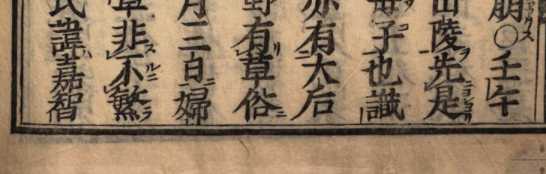 崩〇壬午
山陵先是
母子也讖
亦有大后
野有草俗
月三白婦
草非不
氏諱嘉智